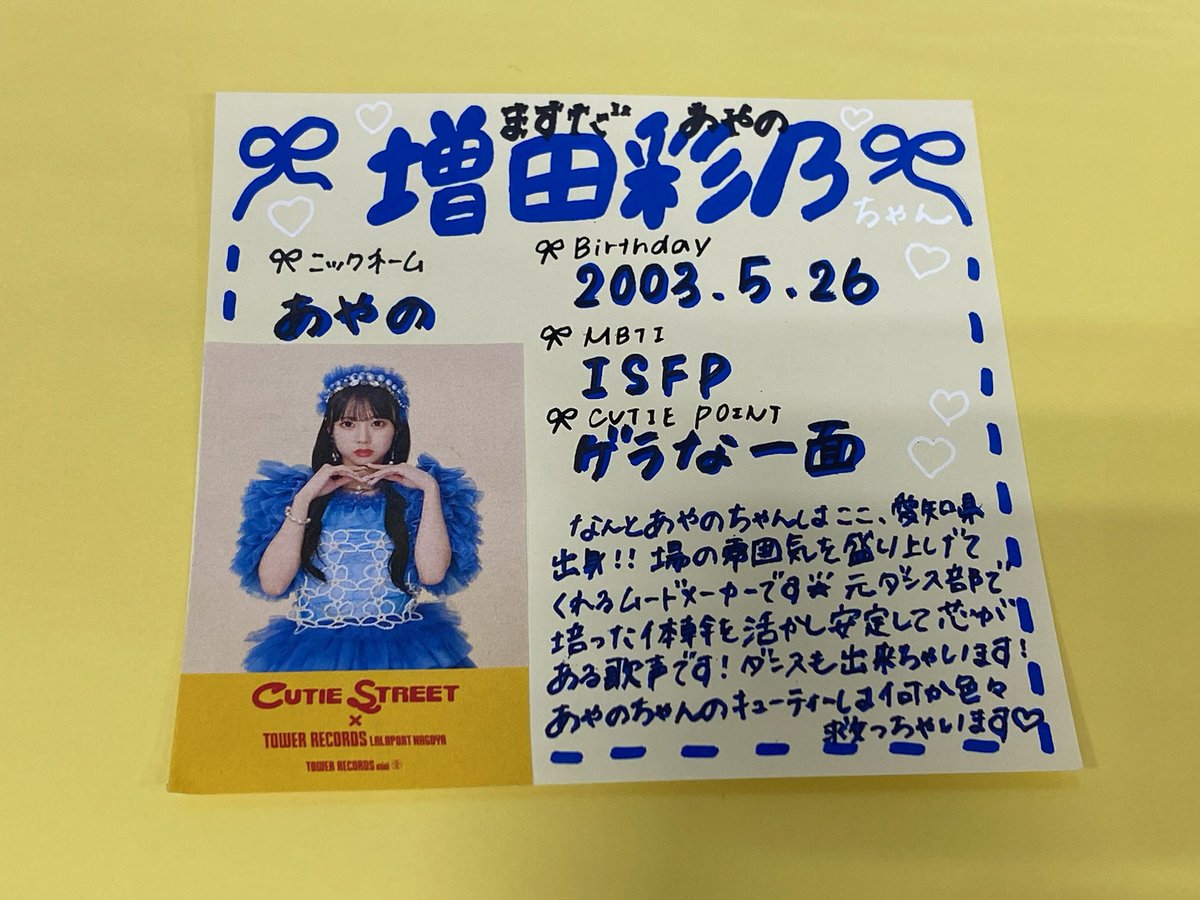 ますだ あやの
増田彩乃
ちゃん
ニックネーム
あやの
Birthday
2003.5.26
MBTI
ISFP
CUTIE POINT
ゲラな一面
なんとあやのちゃんはここ、愛知県
出身!! 場の雰囲気を盛り上げて
くれるムードメーカーです 元ダンス部で
培った体幹を活かし安定して芯が
ある歌声です! ダンスも出来ちゃいます!
あやのちゃんのキューティーは何か色々
救っちゃいます♡
CUTIE STREET
×
TOWER RECORDS LALAPORT NAGOYA
TOWER RECORDS mini